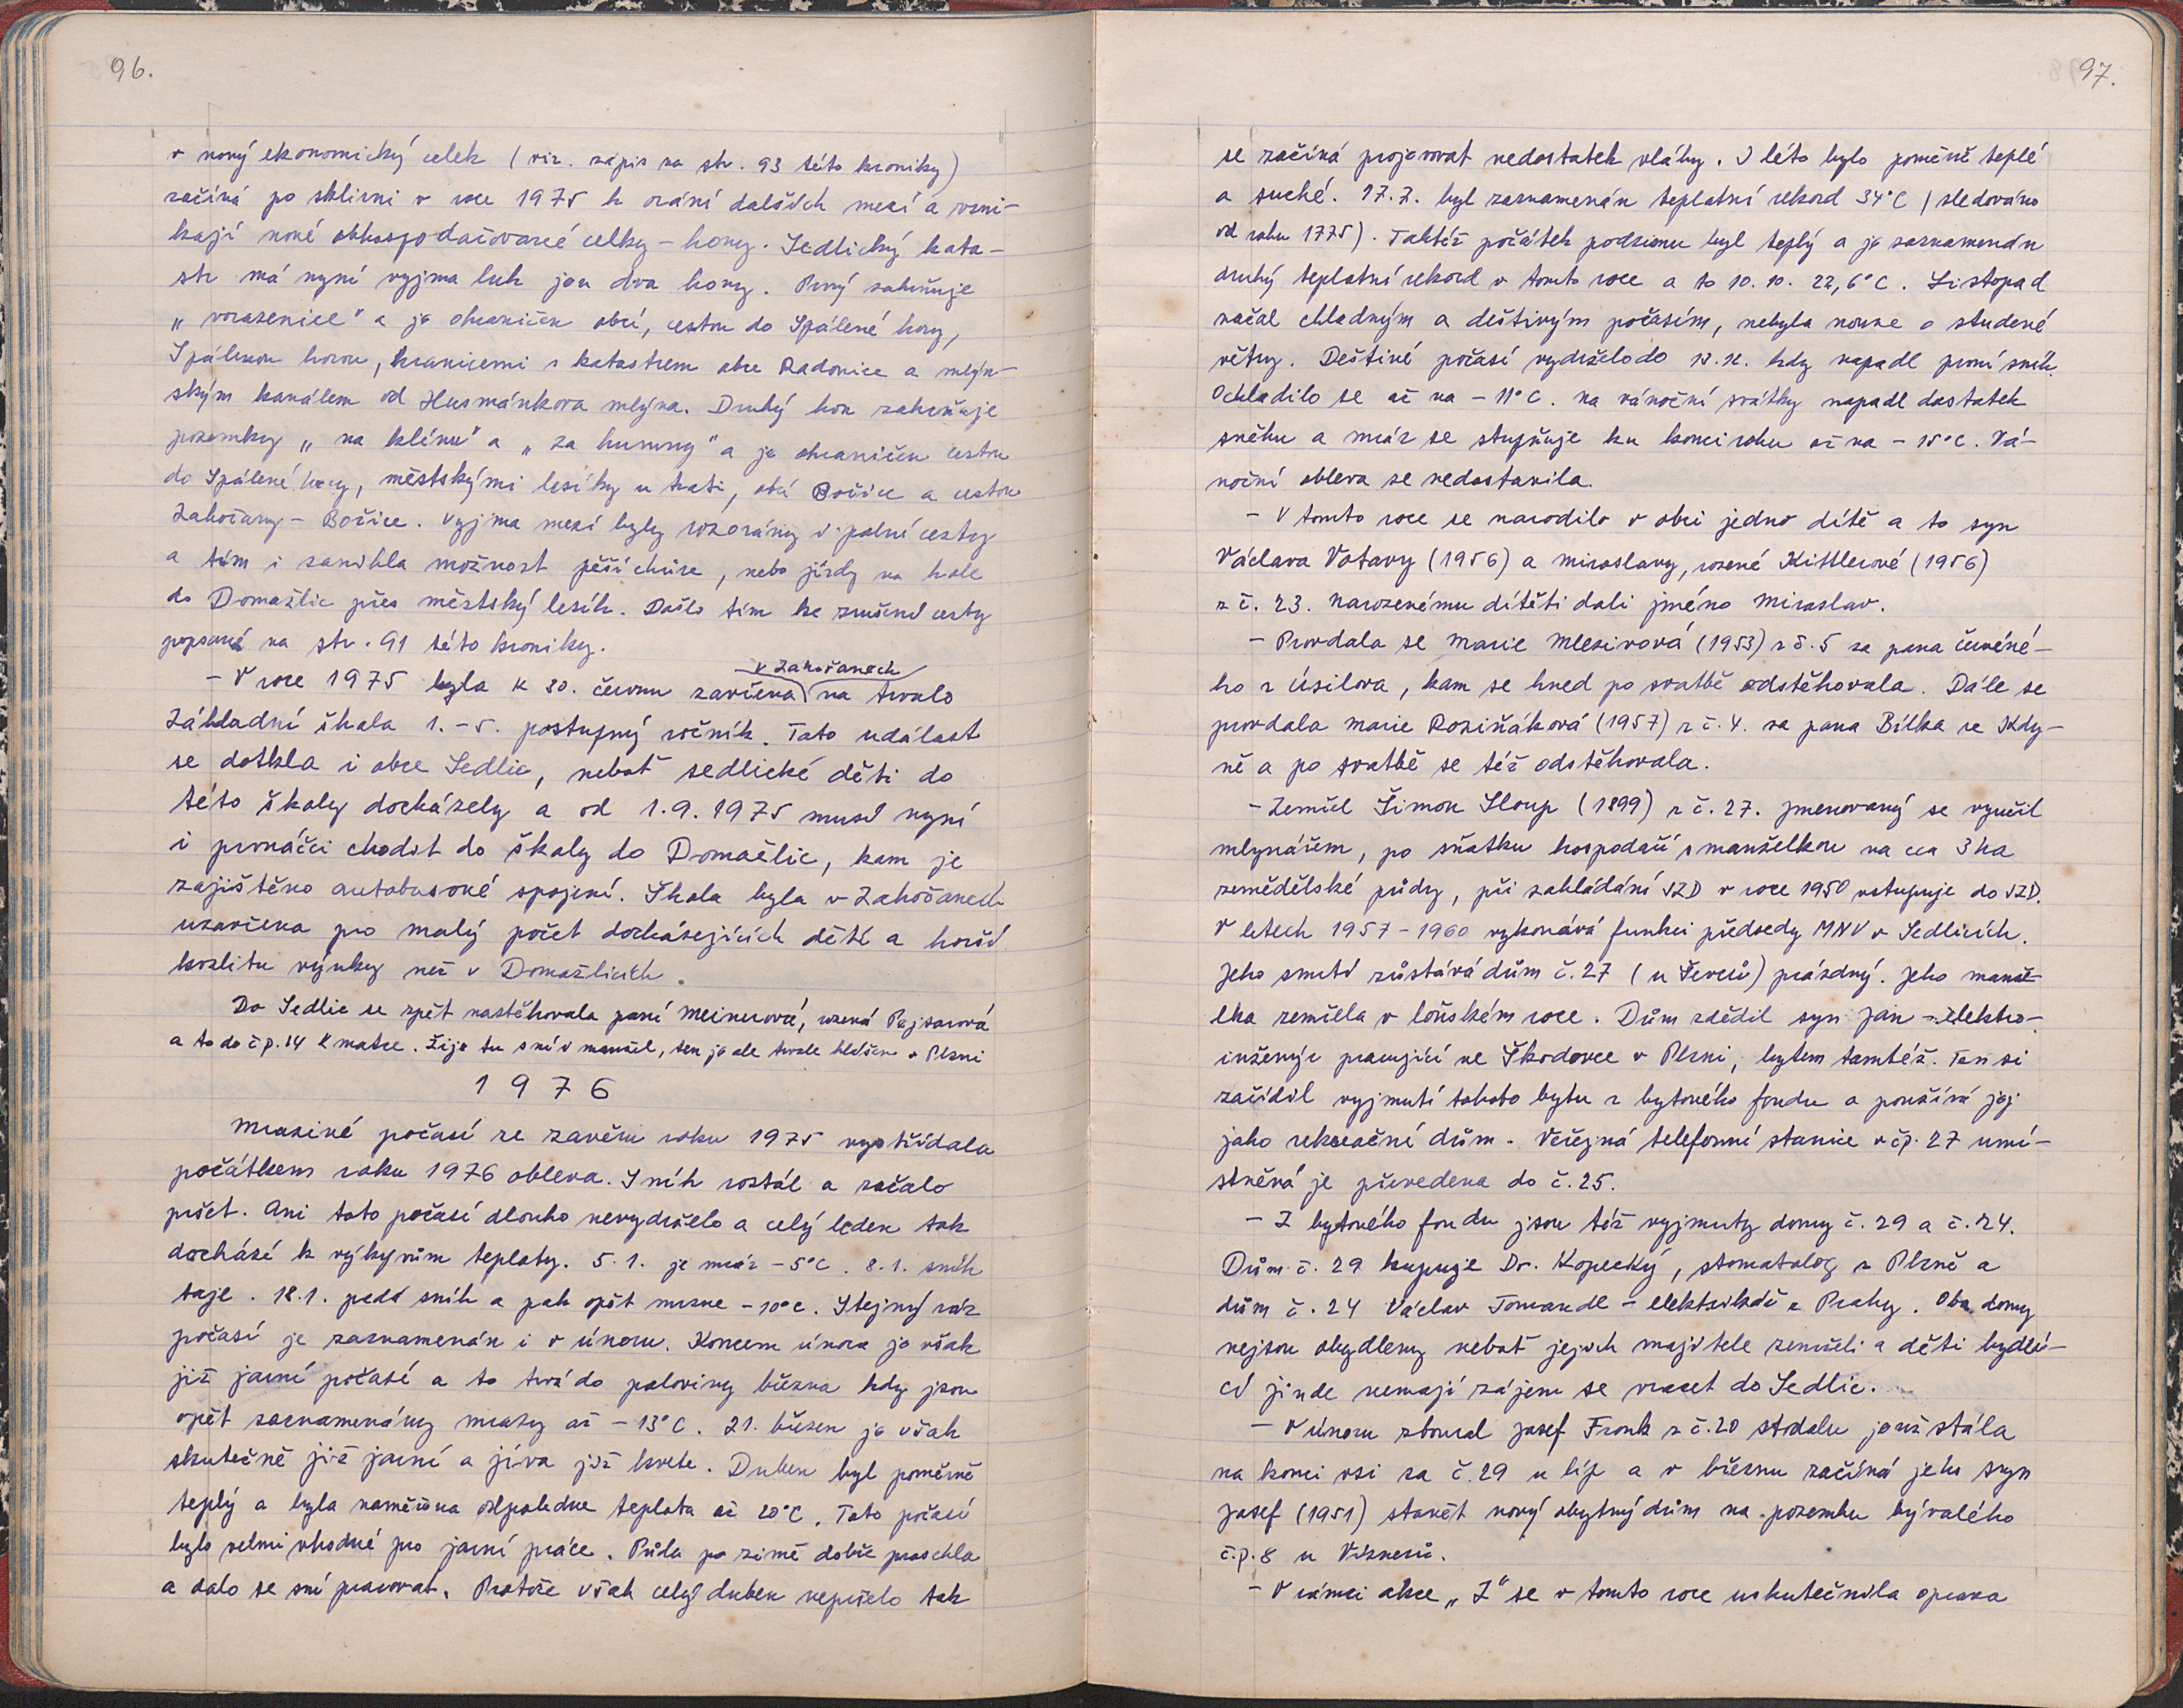 96.
v nový ekonomický celek (viz. zápis na str. 93 této kroniky)
začíná po sklizni v roce 1975 k orání dalších mezí a vzni-
kají nové obhospodařované celky - hony. Sedlický kata-
str má nyní vyjma luk jen dva hony. Prvý zahrňuje
„vorazenice" a je ohraničen obcí, cestou do Spálené hory,
Spálenou horou, hranicemi s katastrem obce Radonice a mlýn-
ským kanálem od Husmánkova mlýna. Druhý hon zahrňuje
pozemky „na klínu" a „za humny" a je ohraničen cestou
do Spálené hory, městskými lesíky u trati, obcí Bořice a cestou
Zahořany - Bořice. Vyjma mezí byly rozorány i polní cesty
a tím i zanikla možnost pěší chůze, nebo jízdy na kole
do Domažlic přes městský lesík. Došlo tím ke zrušení cesty
popsané na str. 91 této kroniky.
v Zahořanech
- V roce 1975 byla k 30. červnu zavřena na trvalo
Základní škola 1.-5. postupný ročník. Tato událost
se dotkla i obce Sedlic, neboť sedlické děti do
této školy docházely a od 1.9.1975 musí nyní
i prvňáčci chodit do školy do Domažlic, kam je
zajištěno autobusové spojení. Škola byla v Zahořanech
uzavřena pro malý počet docházejících dětí a horší
kvalitu výuky než v Domažlicích.
Do Sedlic se zpět nastěhovala paní Meinerová, rozená Pajsarová
a to do čp. 14 k matce. Žije tu s ní i manžel, ten je ale trvale hlášen v Plzni
1976
Mrazivé počasí ze závěru roku 1975 vystřídala
počátkem roku 1976 obleva. Sníh roztál a začalo
pršet. Ani toto počasí dlouho nevydrželo a celý leden tak
dochází k výkyvům teploty. 5.1. je mráz -5°C. 8.1. sníh
taje. 18.1. padá sníh a pak opět mrzne -10°C. Stejný ráz
počasí je zaznamenán i v únoru. Koncem února je však
již jarní počasí a to trvá do poloviny března kdy jsou
opět zaznamenány mrazy až -13°C. 21. březen je však
skutečně již jarní a jíva již kvete. Duben byl poměrně
teplý a byla naměřena odpoledne teplota až 20°C. Toto počasí
bylo velmi vhodné pro jarní práce. Půda po zimě dobře proschla
a dalo se sní pracovat. Protože však celý duben nepršelo tak
97.
se začíná projevovat nedostatek vláhy. I léto bylo poměrně teplé
a suché. 17.7. byl zaznamenán teplotní rekord 34°C (sledováno
od roku 1775). Taktéž počátek podzimu byl teplý a je zaznamenán
druhý teplotní rekord v tomto roce a to 10.10. 22,6°C. Listopad
začal chladným a deštivým počasím, nebyla nouze o studené
větry. Deštivé počasí vydrželo do kdy napadl první sníh.
Ochladilo se až na -11°C. na vánoční svátky napadl dostatek
sněhu a mráz se stupňuje ku konci roku až na -15°C. Vá-
noční obleva se nedostavila.
- V tomto roce se narodilo v obci jedno dítě a to syn
Václava Votavy (1956) a Miroslavy, rozené Kittlerové (1956)
z č. 23. Narozenému dítěti dali jméno Miroslav.
- Provdala se Marie Mlezivová (1953) z č. 5 za pana Červené-
ho z Úsilova, kam se hned po svatbě odstěhovala. Dále se
provdala Marie Roziňáková (1957) z č. 4. za pana Bílka ze Kdy-
ně a po svatbě se též odstěhovala.
- Zemřel Šimon Sloup (1899) z č. 27. Jmenovaný se vyučil
mlynářem, po sňatku hospodaří s manželkou na cca 3 ha
zemědělské půdy, při zakládání JZD v roce 1950 vstupuje do JZD.
V letech 1957-1960 vykonává funkci předsedy MNV v Sedlicích.
Jeho smrtí zůstává dům č. 27 (u Ševců) prázdný. Jeho manže-
lka zemřela v loňském roce. Dům zdědil syn Jan - elektro-
inženýr pracující ve Škodovce v Plzni, bytem tamtéž. Ten si
zařídil vyjmutí tohoto bytu z bytového fondu a používá jej
jako rekreační dům. Veřejná telefonní stanice v čp. 27 umí-
stněná je převedena do č. 25.
- Z bytového fondu jsou též vyjmuty domy č. 29 a č. 24.
Dům č. 29 kupuje Dr. Kopecký, stomatolog z Plzně a
dům č. 24 Václav Tomandl - elektrikář z Prahy. Oba domy
nejsou obydleny neboť jejich majitele zemřeli a děti bydlí-
cí jinde nemají zájem se vracet do Sedlic.
- V únoru zboural Josef Frank z č. 20 stodolu jenž stála
na konci vsi za č. 29 u líp a v březnu začíná jeho syn
Josef (1951) stavět nový obytný dům na pozemku bývalého
č.p. 8 u Víznerů.
- V rámci akce „Z" se v tomto roce uskutečnila oprava